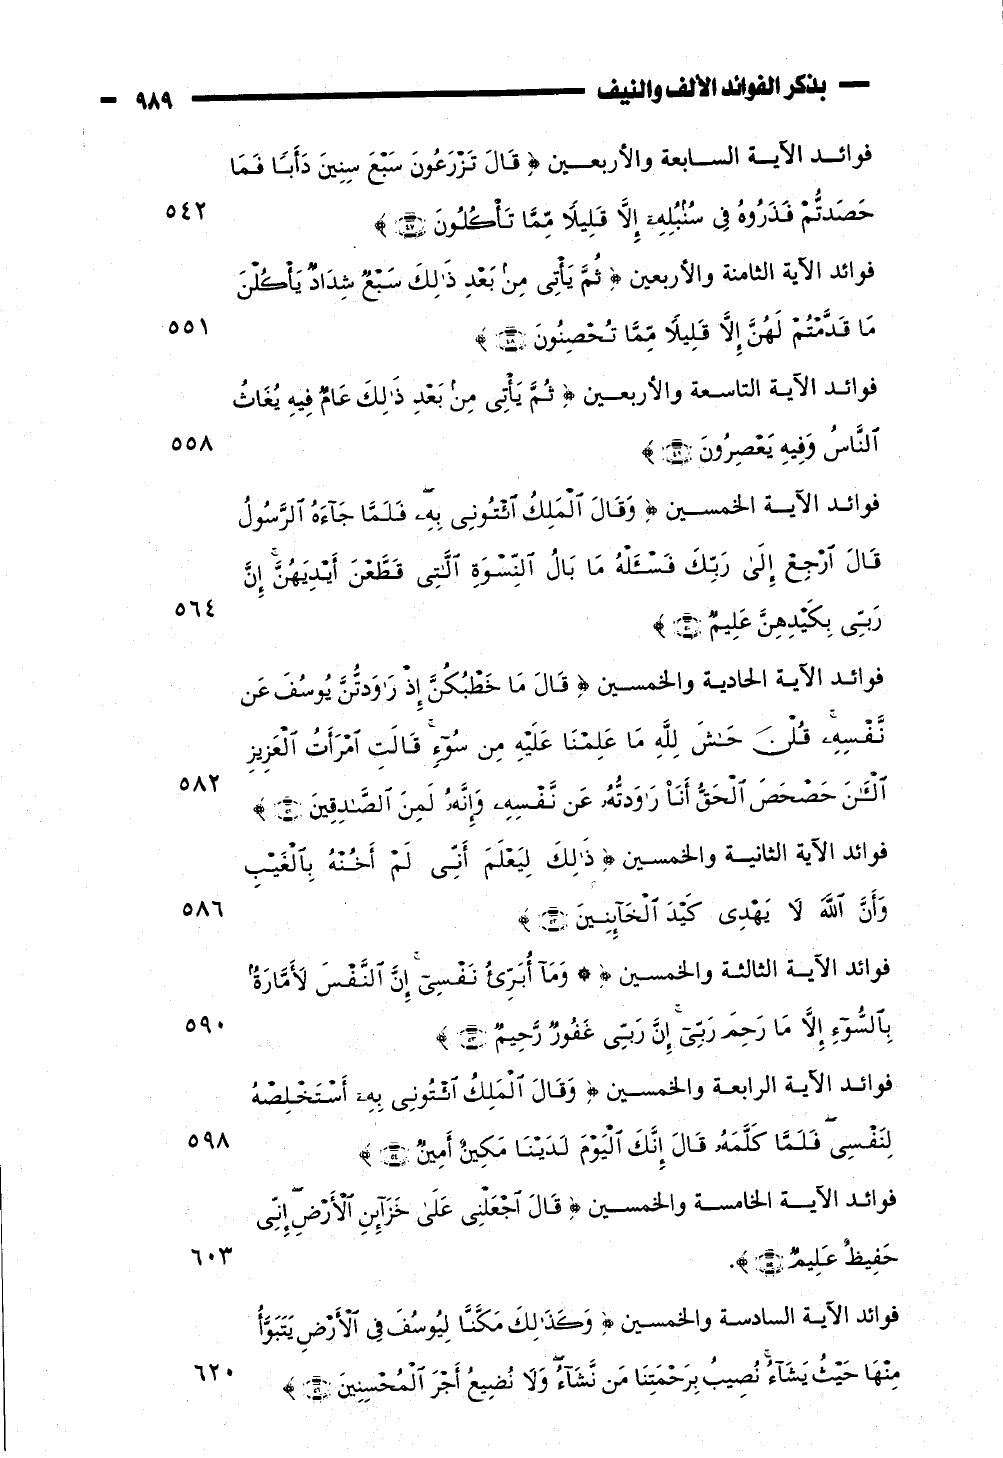 — بذكر الفوائد الألف والنيف ٩٨٩ —
فوائد الآية السابعة والأربعين ﴿ قَالَ تَزْرَعُونَ سَبْعَ سِنِينَ دَأَبًا فَمَا
حَصَدتُّمْ فَذَرُوهُ فِى سُنۢبُلِهِۦٓ إِلَّا قَلِيلًا مِّمَّا تَأْكُلُونَ ٤٧ ﴾ ٥٤٢
فوائد الآية الثامنة والأربعين ﴿ ثُمَّ يَأْتِى مِنۢ بَعْدِ ذَٰلِكَ سَبْعٌ شِدَادٌ يَأْكُلْنَ
مَا قَدَّمْتُمْ لَهُنَّ إِلَّا قَلِيلًا مِّمَّا تُحْصِنُونَ ٤٨ ﴾ ٥٥١
فوائد الآية التاسعة والأربعين ﴿ ثُمَّ يَأْتِى مِنۢ بَعْدِ ذَٰلِكَ عَامٌ فِيهِ يُغَاثُ
ٱلنَّاسُ وَفِيهِ يَعْصِرُونَ ٤٩ ﴾ ٥٥٨
فوائد الآية الخمسين ﴿ وَقَالَ ٱلْمَلِكُ ٱئْتُونِى بِهِۦ ۖ فَلَمَّا جَآءَهُ ٱلرَّسُولُ
قَالَ ٱرْجِعْ إِلَىٰ رَبِّكَ فَسْـَٔلْهُ مَا بَالُ ٱلنِّسْوَةِ ٱلَّـٰتِى قَطَّعْنَ أَيْدِيَهُنَّ ۚ إِنَّ
رَبِّى بِكَيْدِهِنَّ عَلِيمٌ ٥٠ ﴾ ٥٦٤
فوائد الآية الحادية والخمسين ﴿ قَالَ مَا خَطْبُكُنَّ إِذْ رَٰوَدتُّنَّ يُوسُفَ عَن
نَّفْسِهِۦ ۚ قُلْنَ حَـٰشَ لِلَّهِ مَا عَلِمْنَا عَلَيْهِ مِن سُوٓءٍ ۚ قَالَتِ ٱمْرَأَتُ ٱلْعَزِيزِ
ٱلْـَٔـٰنَ حَصْحَصَ ٱلْحَقُّ أَنَا۠ رَٰوَدتُّهُۥ عَن نَّفْسِهِۦ وَإِنَّهُۥ لَمِنَ ٱلصَّـٰدِقِينَ ٥١ ﴾ ٥٨٢
فوائد الآية الثانية والخمسين ﴿ ذَٰلِكَ لِيَعْلَمَ أَنِّى لَمْ أَخُنْهُ بِٱلْغَيْبِ
وَأَنَّ ٱللَّهَ لَا يَهْدِى كَيْدَ ٱلْخَآئِنِينَ ٥٢ ﴾ ٥٨٦
فوائد الآية الثالثة والخمسين ﴿ * وَمَآ أُبَرِّئُ نَفْسِىٓ ۚ إِنَّ ٱلنَّفْسَ لَأَمَّارَةٌۢ
بِٱلسُّوٓءِ إِلَّا مَا رَحِمَ رَبِّىٓ ۚ إِنَّ رَبِّى غَفُورٌ رَّحِيمٌ ٥٣ ﴾ ٥٩٠
فوائد الآية الرابعة والخمسين ﴿ وَقَالَ ٱلْمَلِكُ ٱئْتُونِى بِهِۦٓ أَسْتَخْلِصْهُ
لِنَفْسِى ۖ فَلَمَّا كَلَّمَهُۥ قَالَ إِنَّكَ ٱلْيَوْمَ لَدَيْنَا مَكِينٌ أَمِينٌ ٥٤ ﴾ ٥٩٨
فوائد الآية الخامسة والخمسين ﴿ قَالَ ٱجْعَلْنِى عَلَىٰ خَزَآئِنِ ٱلْأَرْضِ ۖ إِنِّى
حَفِيظٌ عَلِيمٌ ٥٥ ﴾. ٦٠٣
فوائد الآية السادسة والخمسين ﴿ وَكَذَٰلِكَ مَكَّنَّا لِيُوسُفَ فِى ٱلْأَرْضِ يَتَبَوَّأُ
مِنْهَا حَيْثُ يَشَآءُ ۚ نُصِيبُ بِرَحْمَتِنَا مَن نَّشَآءُ ۖ وَلَا نُضِيعُ أَجْرَ ٱلْمُحْسِنِينَ ٥٦ ﴾ ٦٢٠